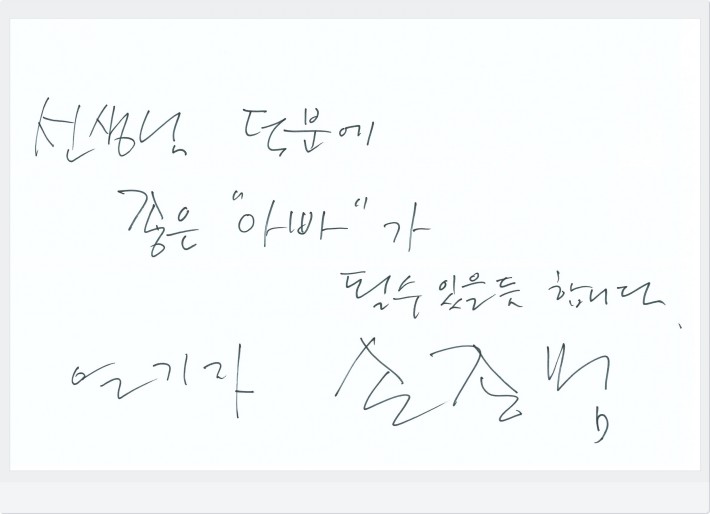 선생님 덕분에
좋은 "아빠"가
될수 있을듯 합니다.
연기자 손준범